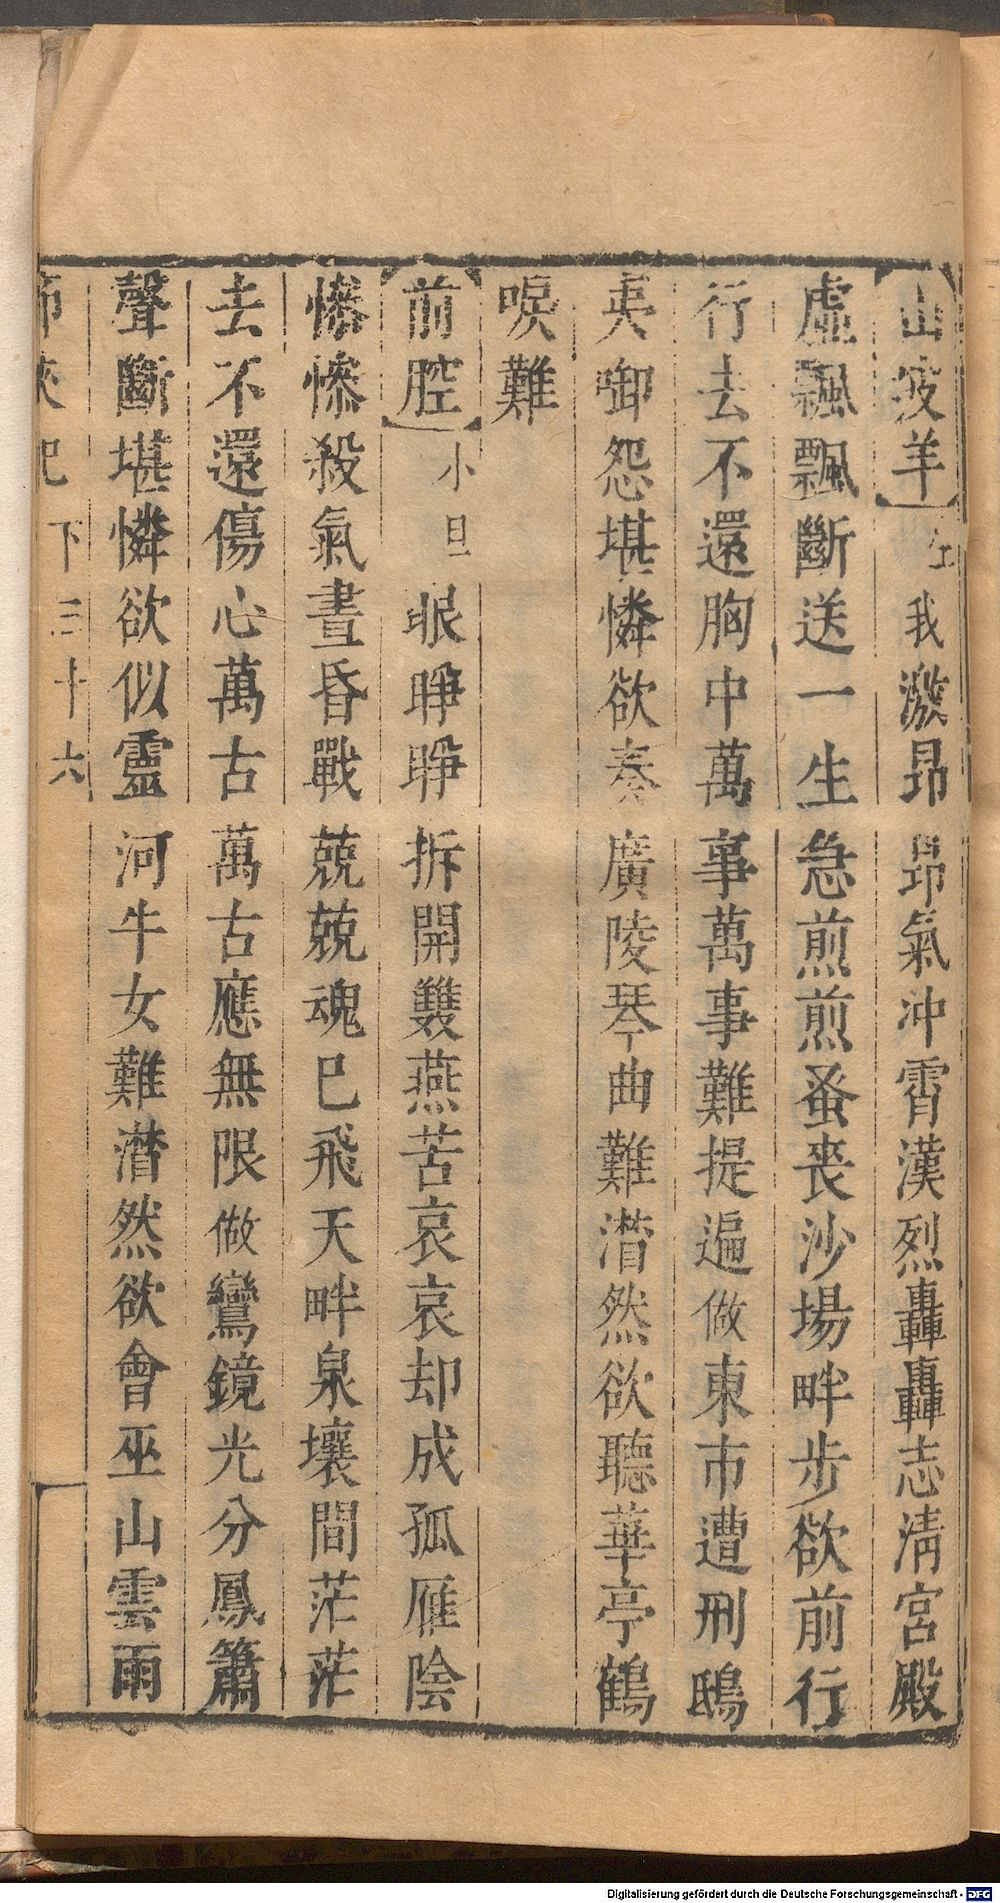 山坡羊生我激昂昂氣冲霄漢烈轟轟志淸宮殿
虛飄飄斷送一生急煎煎蚤喪沙場畔步欲前行
行去不還胸中萬事萬事難提遍做東市遭刑鴟
夷卸怨堪憐欲奏廣陵琴曲難濳然欲聽華亭鶴
唳難
前腔小旦眼睜睜拆開雙燕苦哀哀却成孤雁陰
慘慘殺氣晝昏戰兢兢魂已飛天畔泉壤間茫茫
去不還傷心萬古萬古應無限做鸞鏡光分鳳簫
聲斷堪憐欲似靈河牛女難濳然欲會巫山雲雨
節俠記下三十六
Digitalisierung gefördert durch die Deutsche Forschungsgemeinschaft - DFG